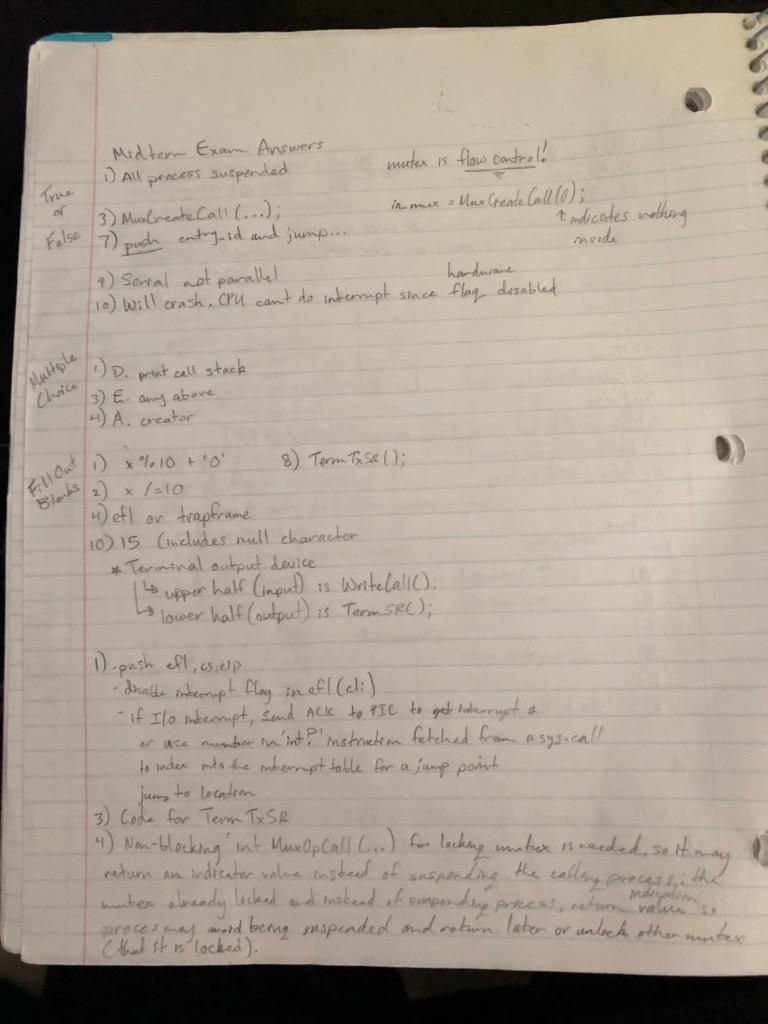 Midterm Exam Answers
1) All process suspended
mutex is flow control!
True
or
False
3) MuxCreateCall (...);
in_mux = MuxCreateCall(0);
↑ indicates nothing
inside
7) push entry_id and jump...
9) Serial not parallel
hardware
10) Will crash. CPU cant do interrupt since flag disabled
Multiple
Choice
1) D. print call stack
3) E. any above
4) A. creator
Fill Out
Blanks
1) x % 10 + '0'
8) TermTxSR();
2) x /= 10
4) efl or trapframe
10) 15 (includes null character
* Terminal output device
↳ upper half (input) is WriteCall();
↳ lower half (output) is TermSR();
1) -push efl, cs, eip
- disable interrupt flag in efl (cli)
- if I/O interrupt, send ACK to PIC to get interrupt #
or use number in 'int ?' instruction fetched from a sys-call
to index into the interrupt table for a jump point
jump to location
3) Code for TermTxSR
4) Non-blocking 'int MuxOpCall (...) for locking mutex is needed, so it may
return an indicator value instead of suspending the calling process; the
mutex already locked and instead of suspending process, return indication value so
process may avoid being suspended and return later or unlock other mutex
(that it is locked).